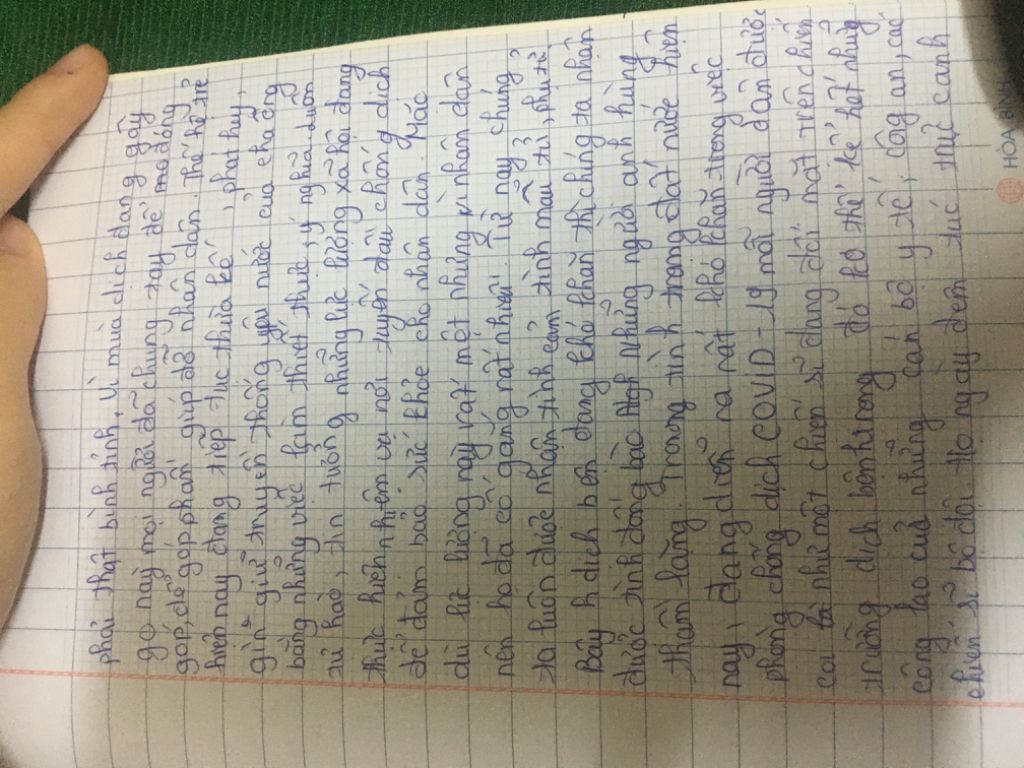 phải thật bình tĩnh, vì mùa dịch đang gây
go này mọi người đã chung tay để mà đóng
góp, để góp phần giúp đỡ nhân dân. Thế hệ trẻ
hiện nay đang tiếp tục thừa kế, phát huy,
gìn giữ truyền thống yêu nước của cha ông
bằng những việc làm thiết thực, ý nghĩa luôn
tự hào, tin tưởng những lực lượng xã hội đang
thực hiện nhiệm vụ nơi tuyến đầu chống dịch
để đảm bảo sức khỏe cho nhân dân. Mặc
dù lực lượng này rất mệt nhưng vì nhân dân
nên họ đã cố gắng rất nhiều. Từ nay chúng
ta luôn được nhận tình cảm tình mẫu tử, phụ tử,
Bây h dịch bệnh đang khó khăn thì chúng ta nhận
được tình đồng bào những người anh hùng
thầm lặng. Trong tình trạng đất nước hiện
nay, đang diễn ra rất khó khăn trong việc
phòng chống dịch COVID-19 mỗi người dân được
coi là như một chiến sĩ đang đối mặt trên chiến
trường dịch bệnh trong đó ko thể kể hết những
công lao của những cán bộ y tế, công an, các
chiến sĩ bộ đội. Họ ngày đêm túc trực canh
HÒA BÌNH